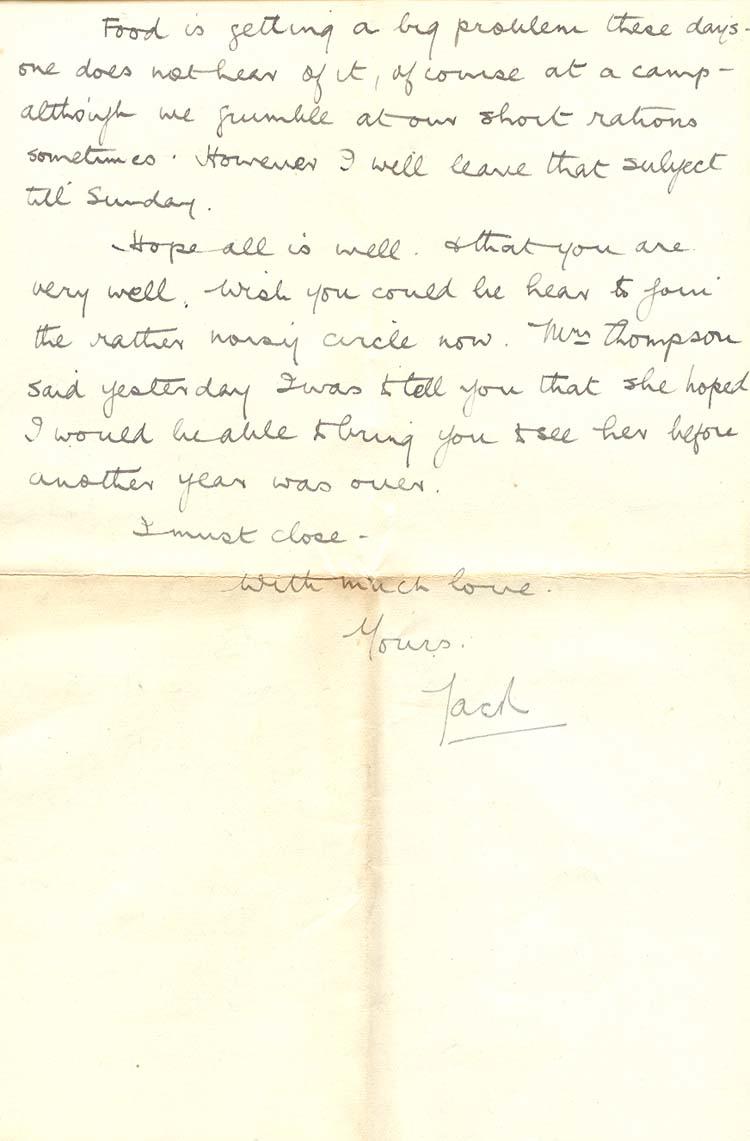 Food is getting a big problem these days -
one does not hear of it, of course at a camp -
although we grumble at our short rations
sometimes. However I will leave that subject
till Sunday.
Hope all is well. & that you are
very well. Wish you could be hear to join
the rather noisy circle now. Mrs Thompson
said yesterday I was to tell you that she hoped
I would be able to bring you to see her before
another year was over.
I must close -
With much love.
Yours.
Jack